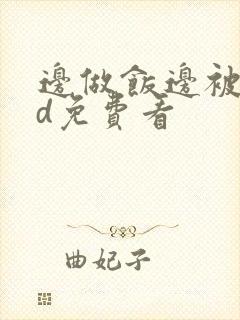 邊做飯邊被
d免費看
曲妃子